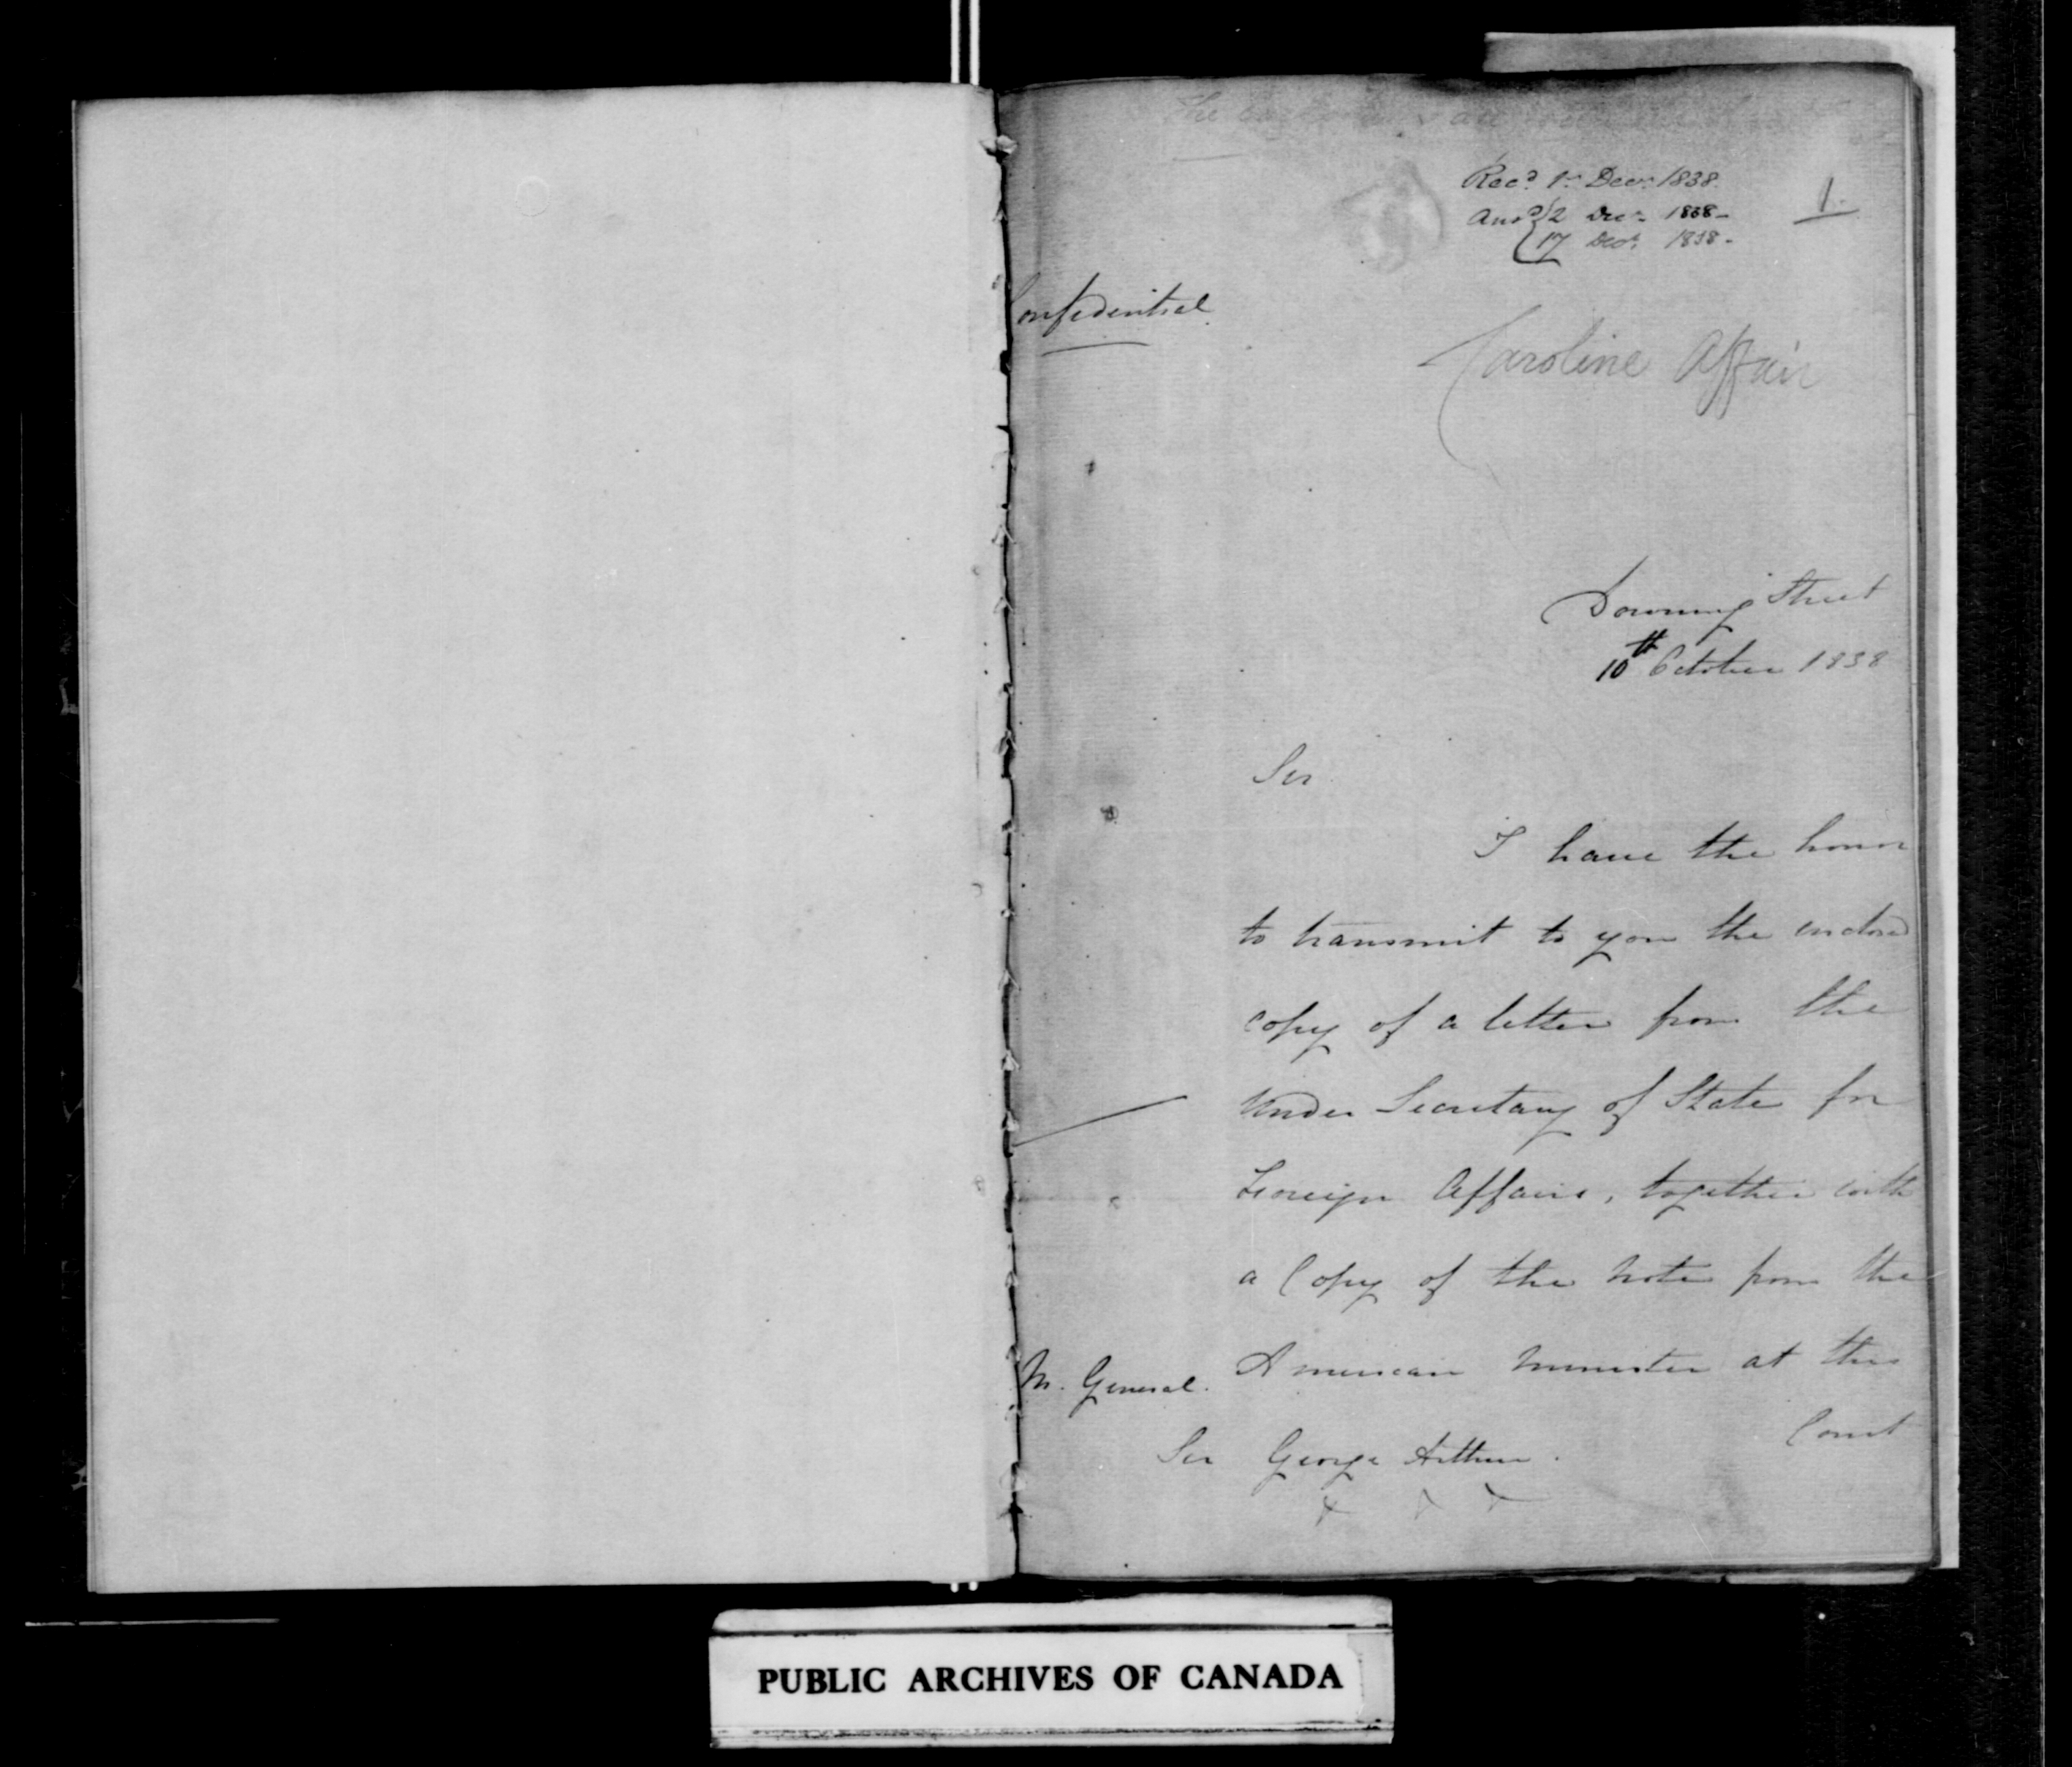 Recd 1st Decr 1838.
1.
Ansd { 2 Decr 1838 -
17 Decr 1838 -
Confidential
Caroline Affair
Downing Street
10th October 1838
Sir
I have the honor
to transmit to you the enclosed
copy of a letter from the
Under Secretary of State for
Foreign Affairs, together with
a Copy of the note from the
American Minister at this
Court
M. General.
Sir George Arthur.
x x x
PUBLIC ARCHIVES OF CANADA